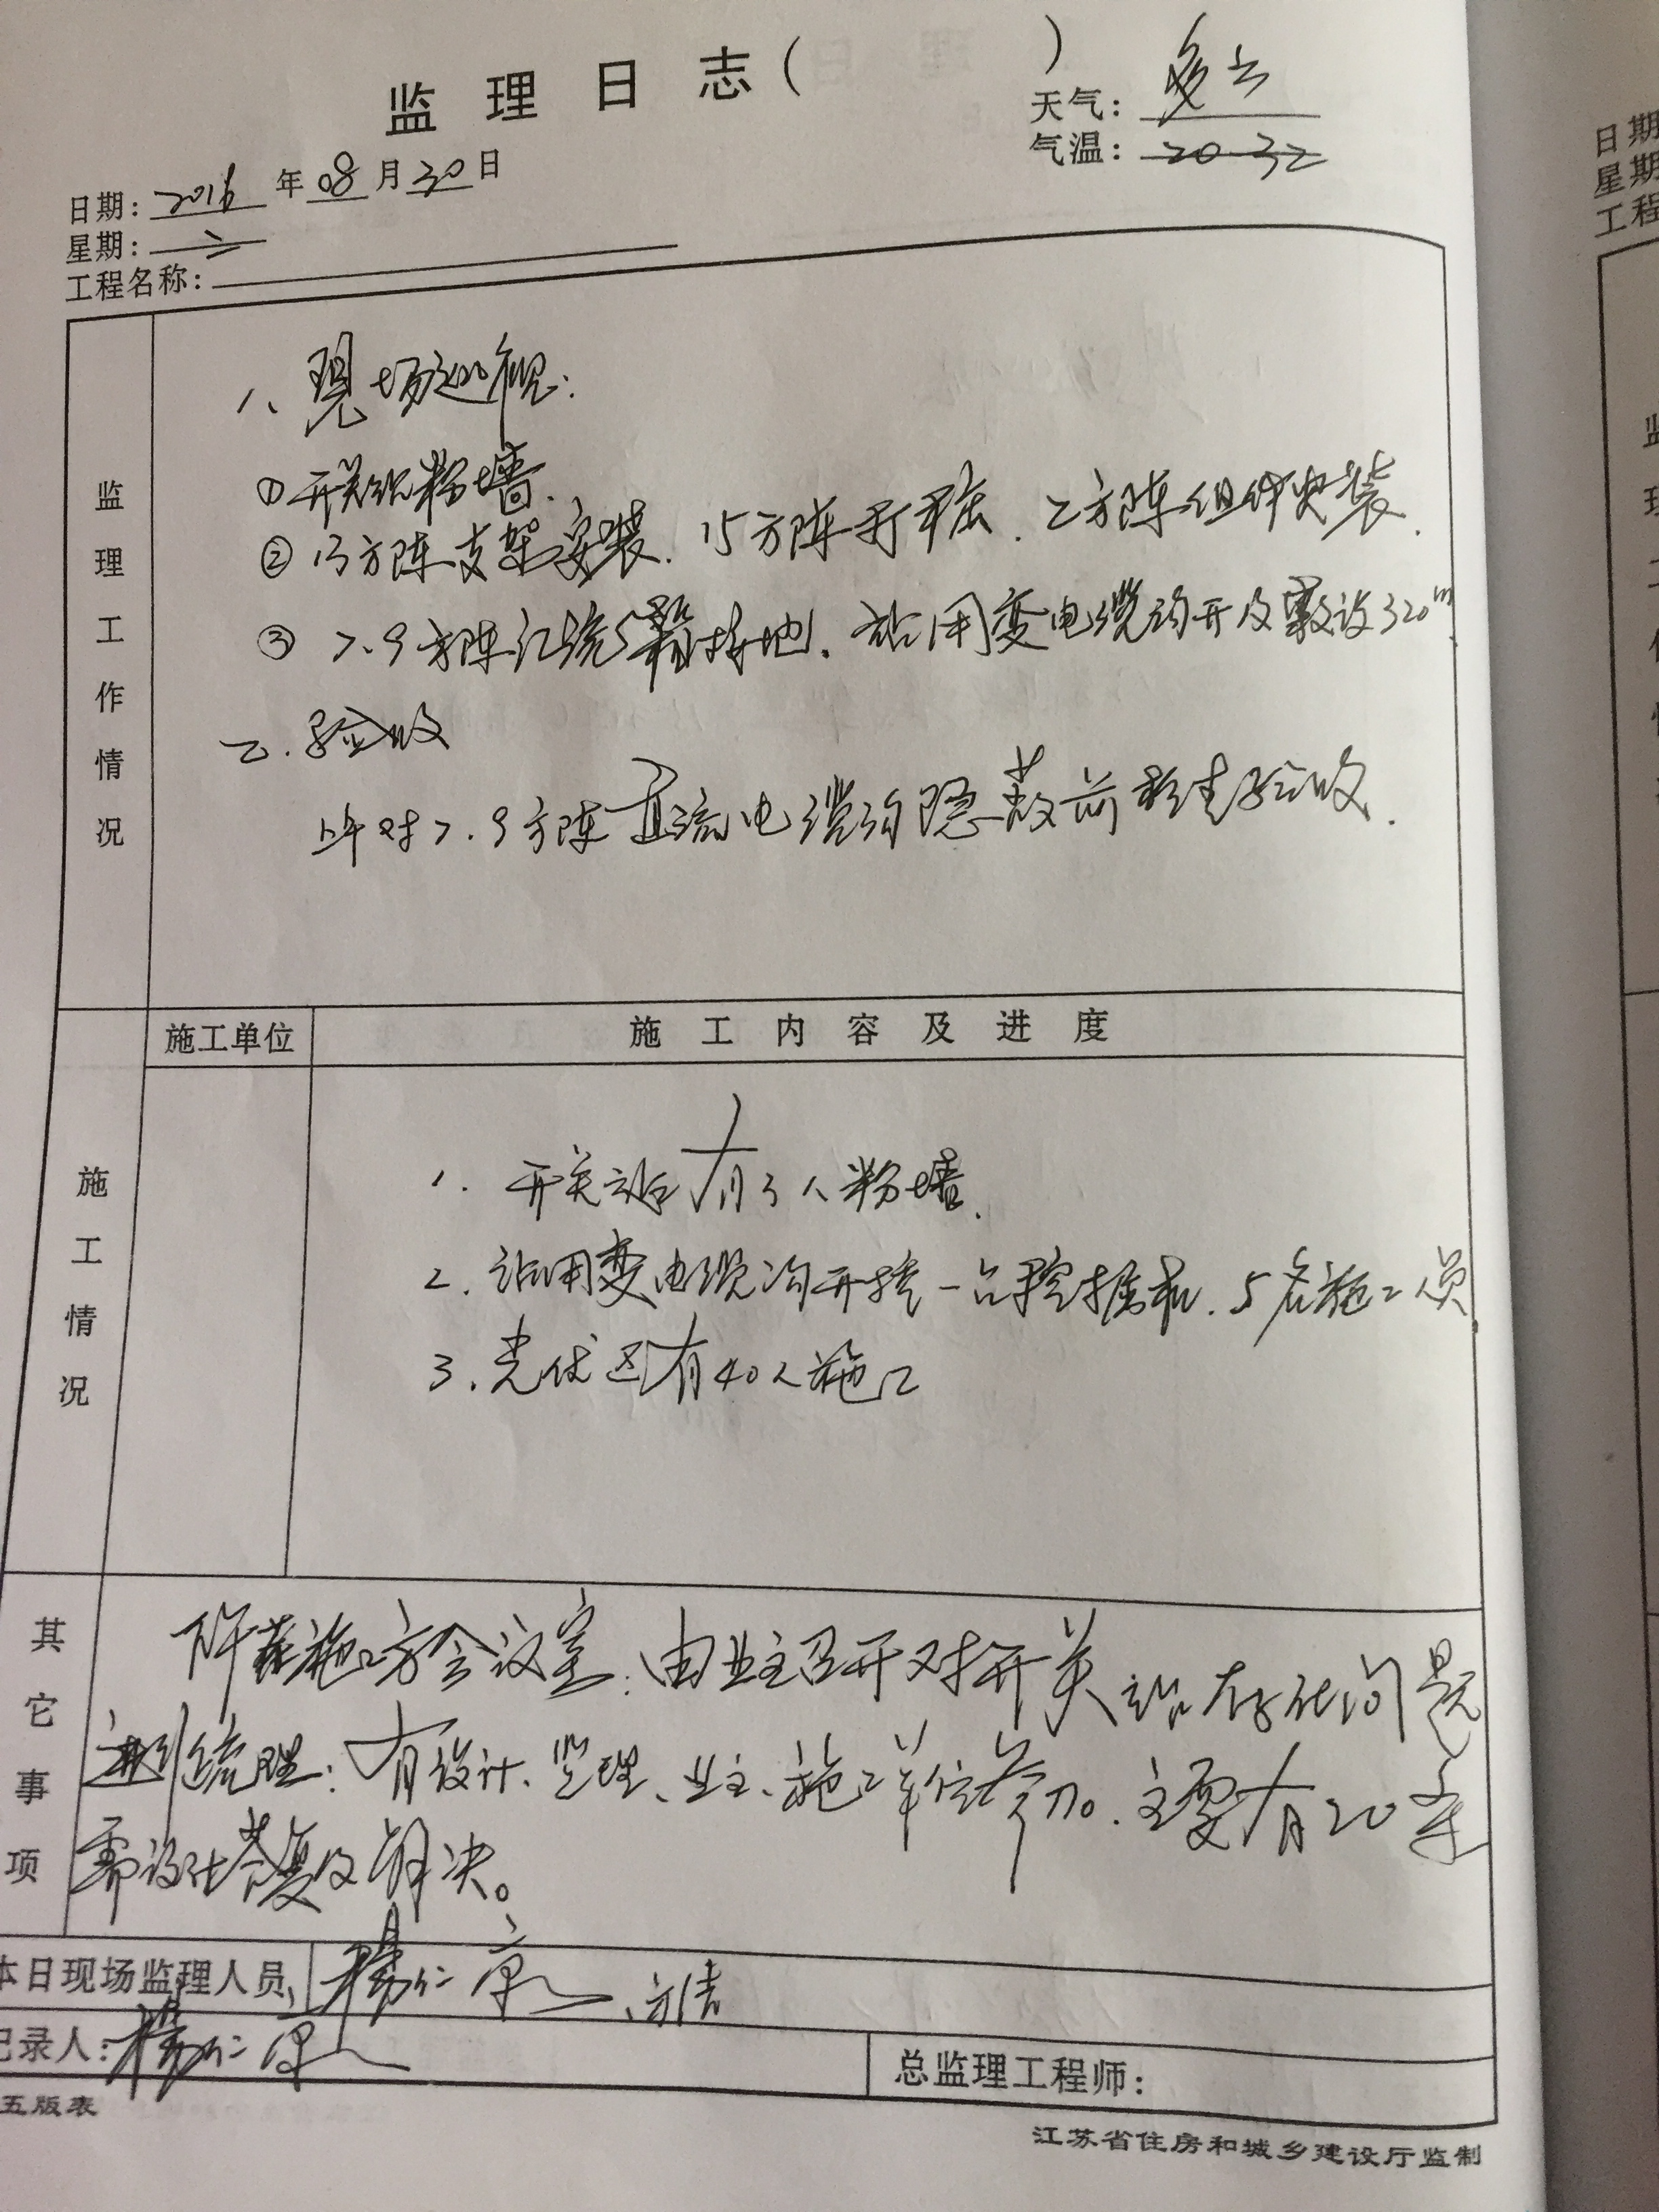 监理日志( )
天气: 多云
气温: 20-32
日期: 2016 年 08 月 30 日
星期: 二
工程名称:
监理工作情况
一、现场巡视:
①开关站粉墙.
②13方阵支架安装. 15方阵开平压. 2方阵组件安装.
③ 7.9方阵汇流箱接地. 站用变电缆沟开及敷设320m
二. 验收
上午对7.9方阵直流电缆沟隐蔽前检查验收.
施工情况
施工单位
施工内容及进度
1. 开关站有3人粉墙.
2. 站用变电缆沟开挖一台挖掘机. 5名施工人员
3. 光伏区有40人施工
其它事项
下午在施工方会议室. 由业主召开对开关站存在问题
进行梳理: 有设计、监理、业主、施工单位参加。主要有20条
需设计答复及解决。
本日现场监理人员 杨仁 、方洁
记录人: 杨仁
总监理工程师:
五版表
江苏省住房和城乡建设厅监制
日期
星期
工程